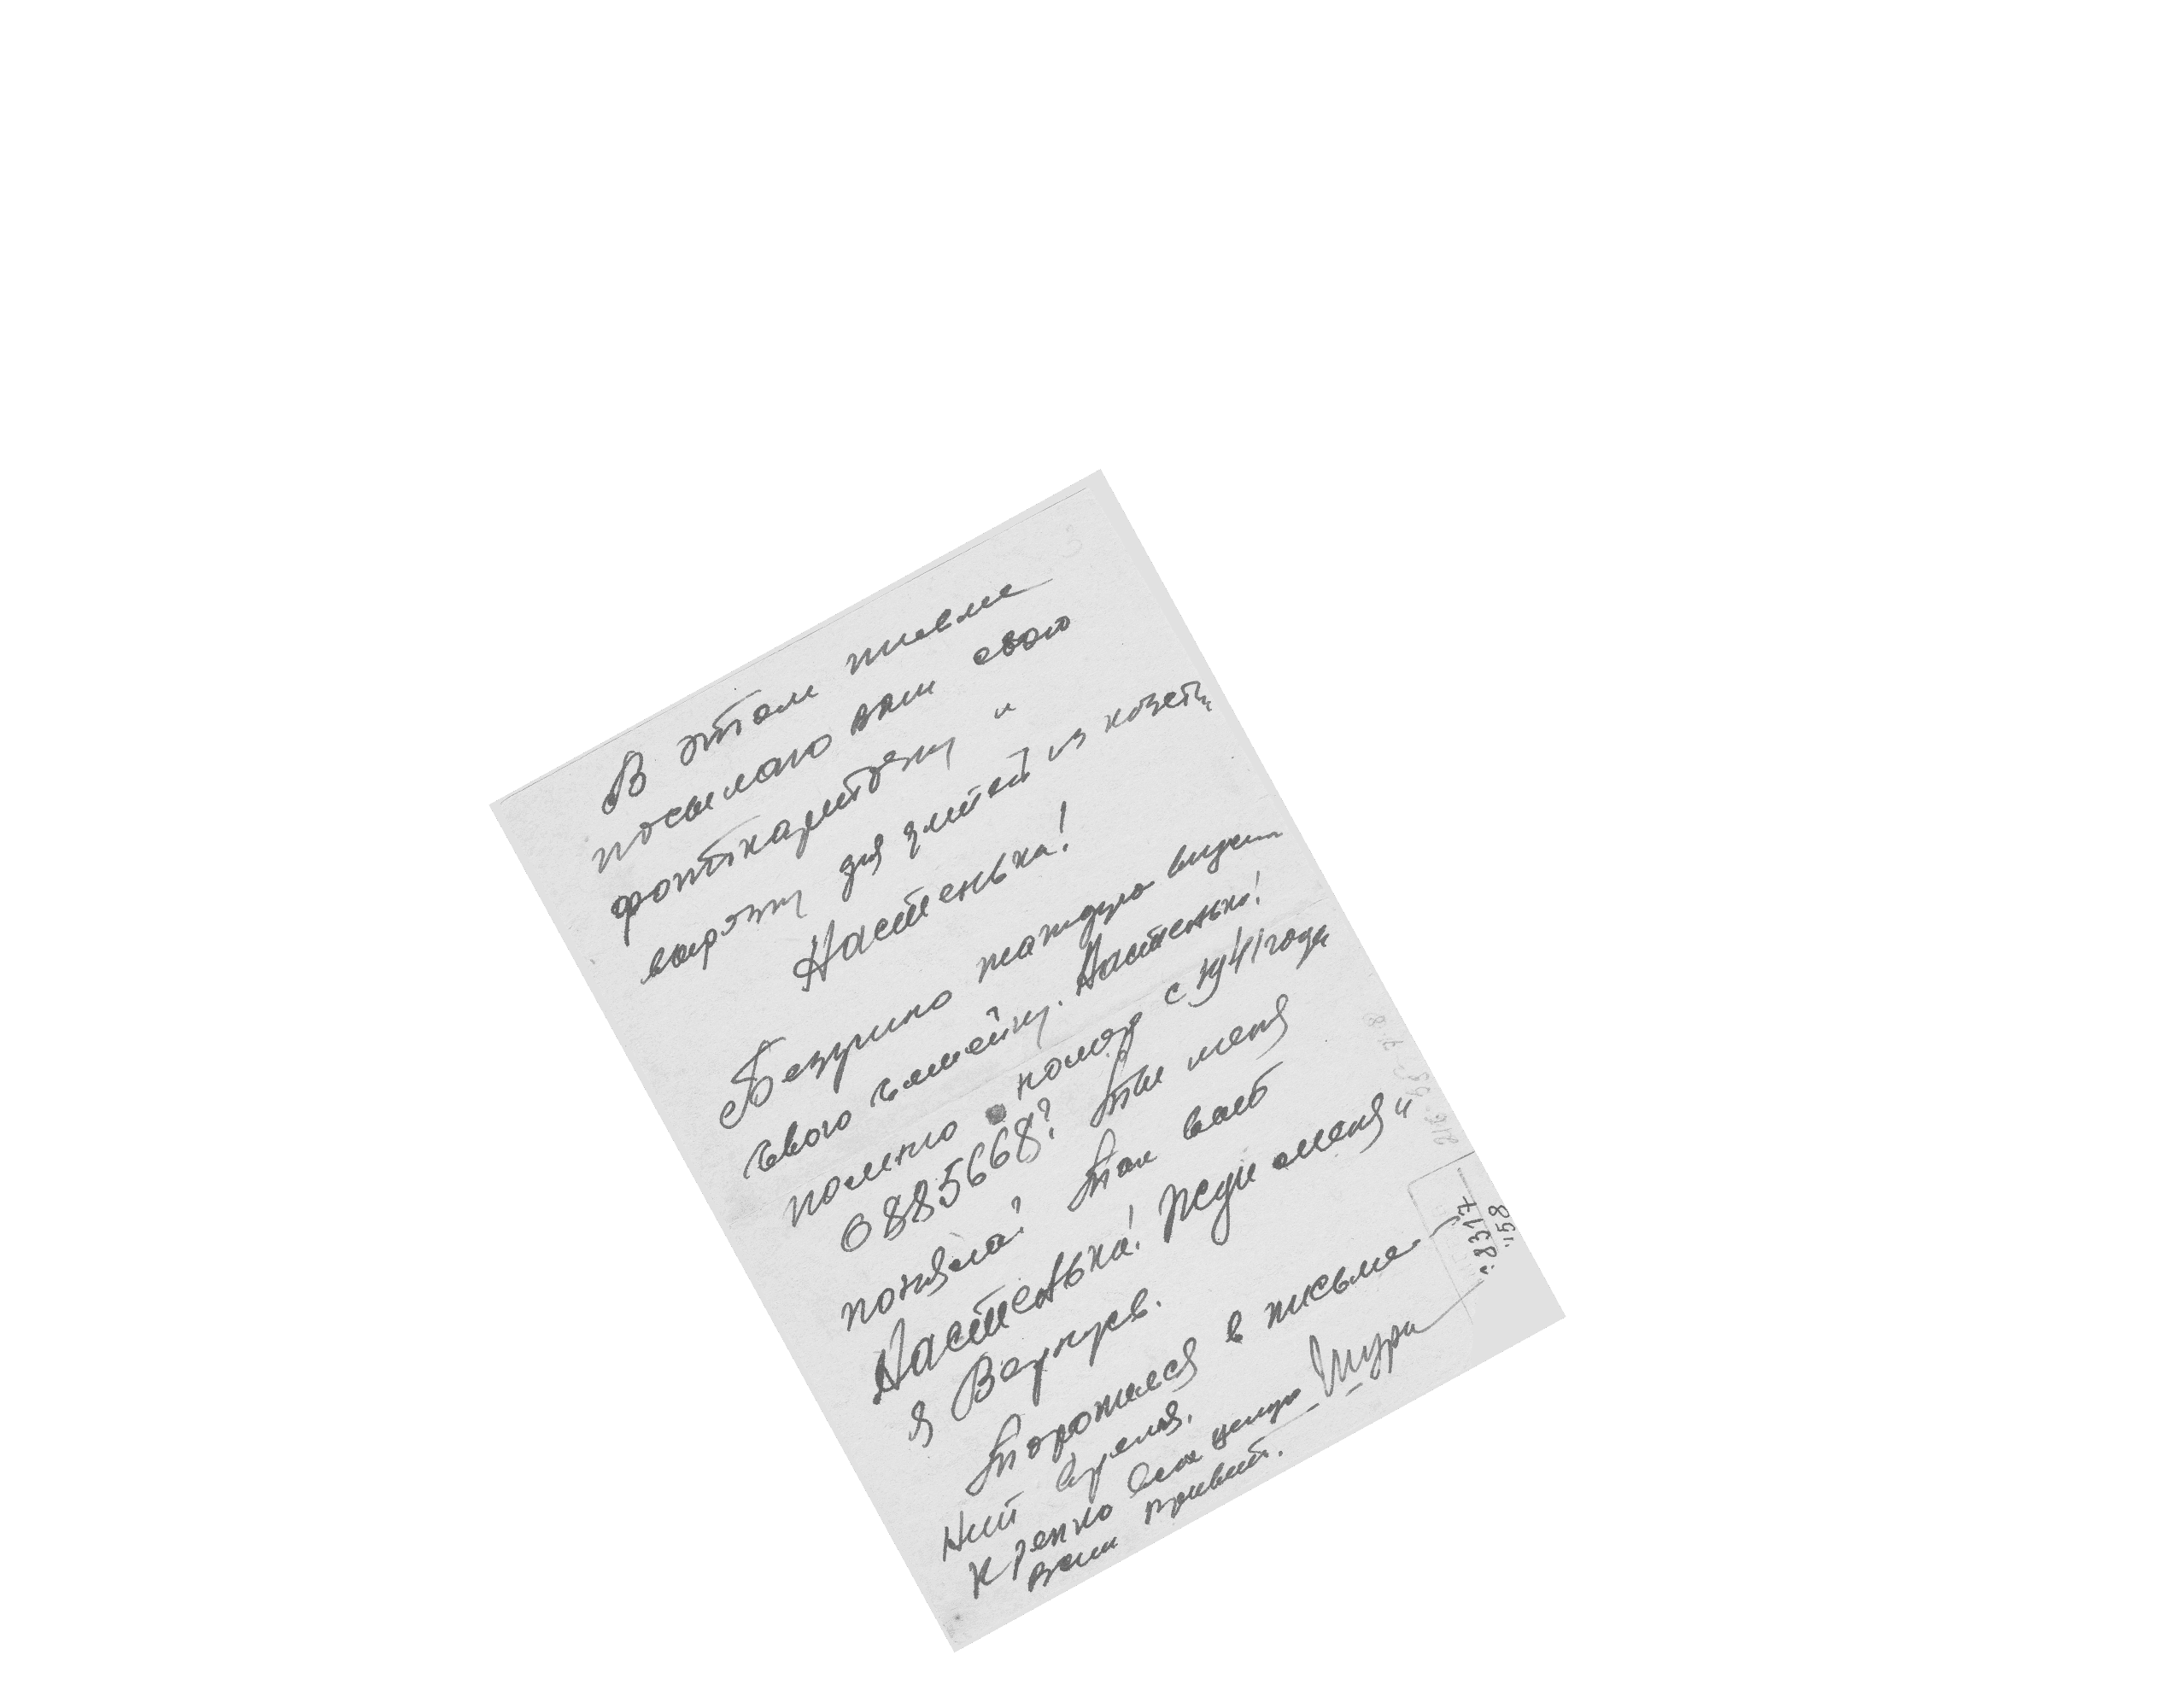 3
В этом письме
посылаю вам свою
фоткарточку и
вырезку для детей из газеты
Настенька!
Безумно жажду видеть
свою семейку. Настенька!
помню номер с 1941 года
0885668? Ты меня
поняла? Так вот
Настенька! Жди меня"
я Вернусь.
Торопился в письме
Нит время.
Крепко всех целую Шура
всем привет.
8317
158